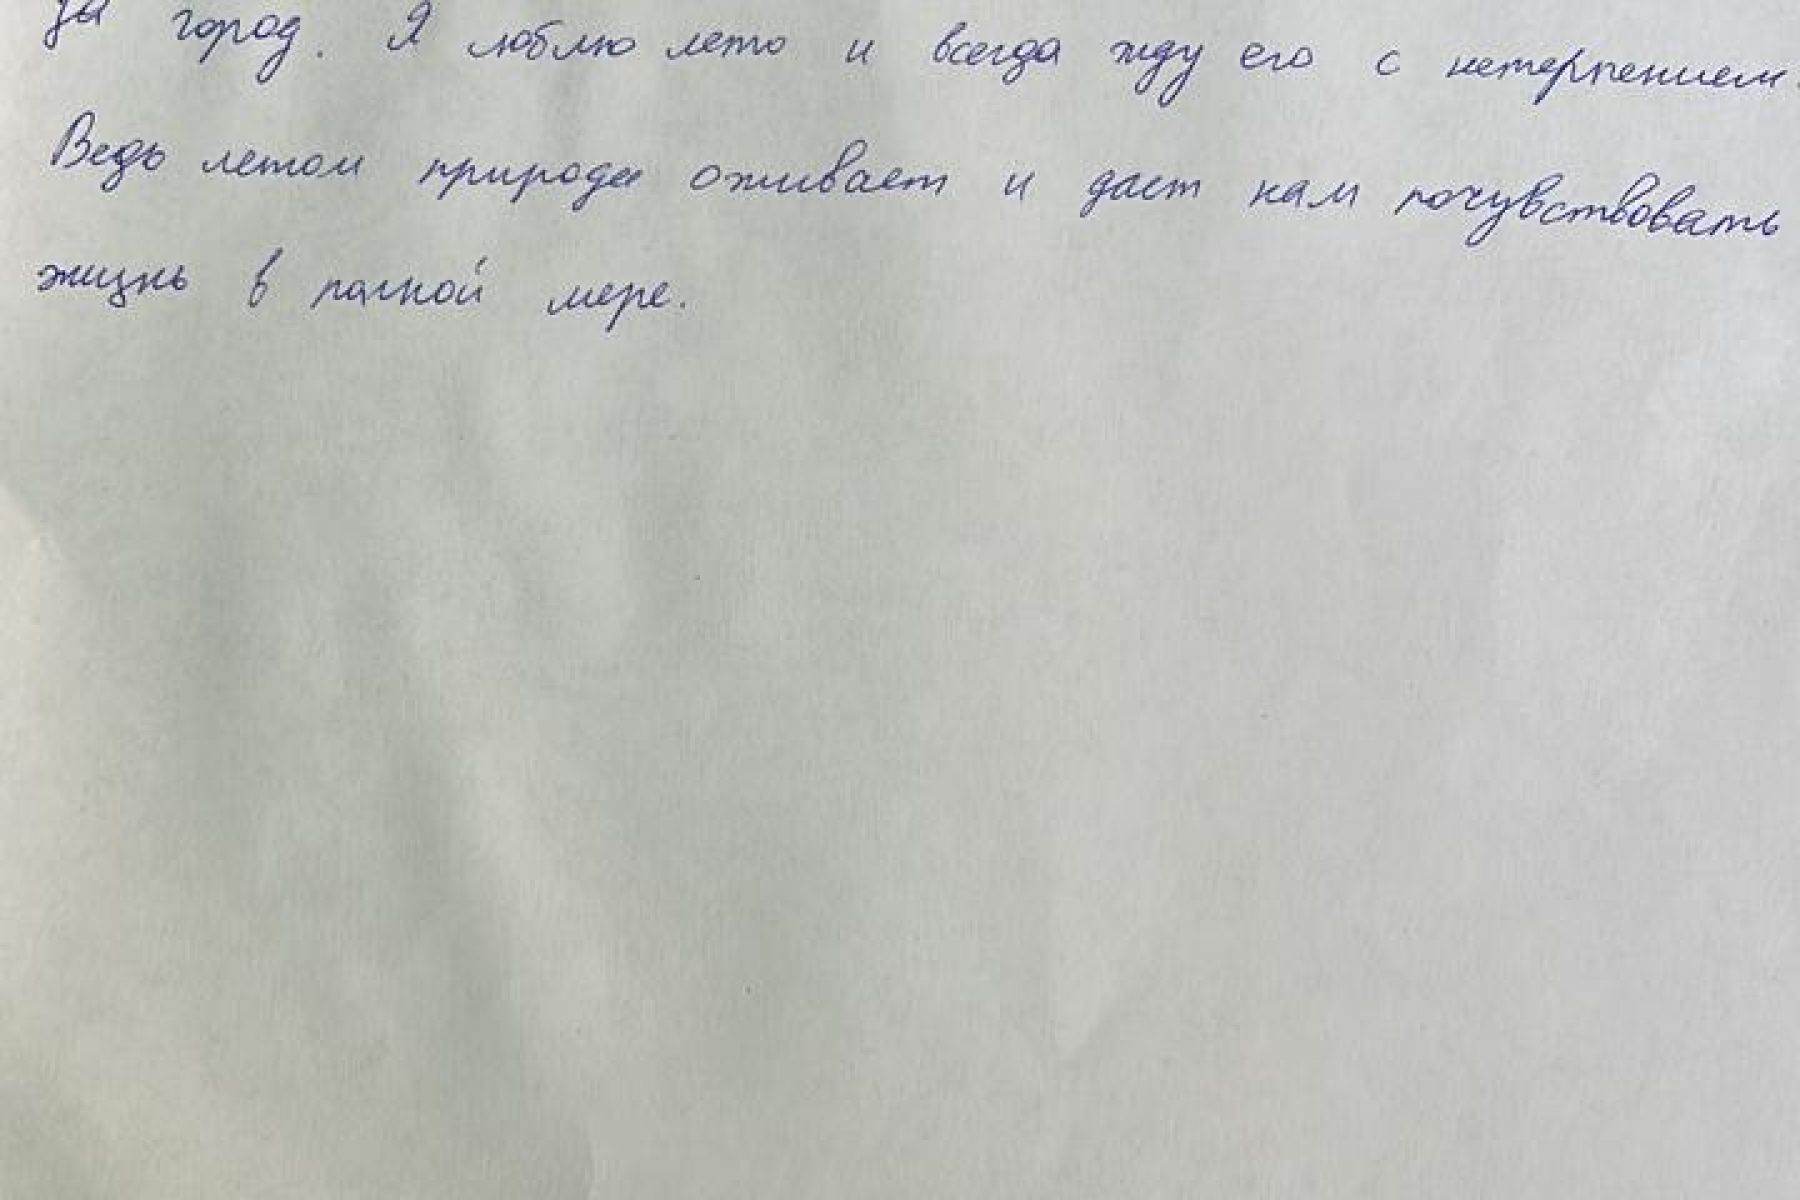 за город. Я люблю лето и всегда жду его с нетерпением.
Ведь летом природа оживает и дает нам почувствовать
жизнь в полной мере.